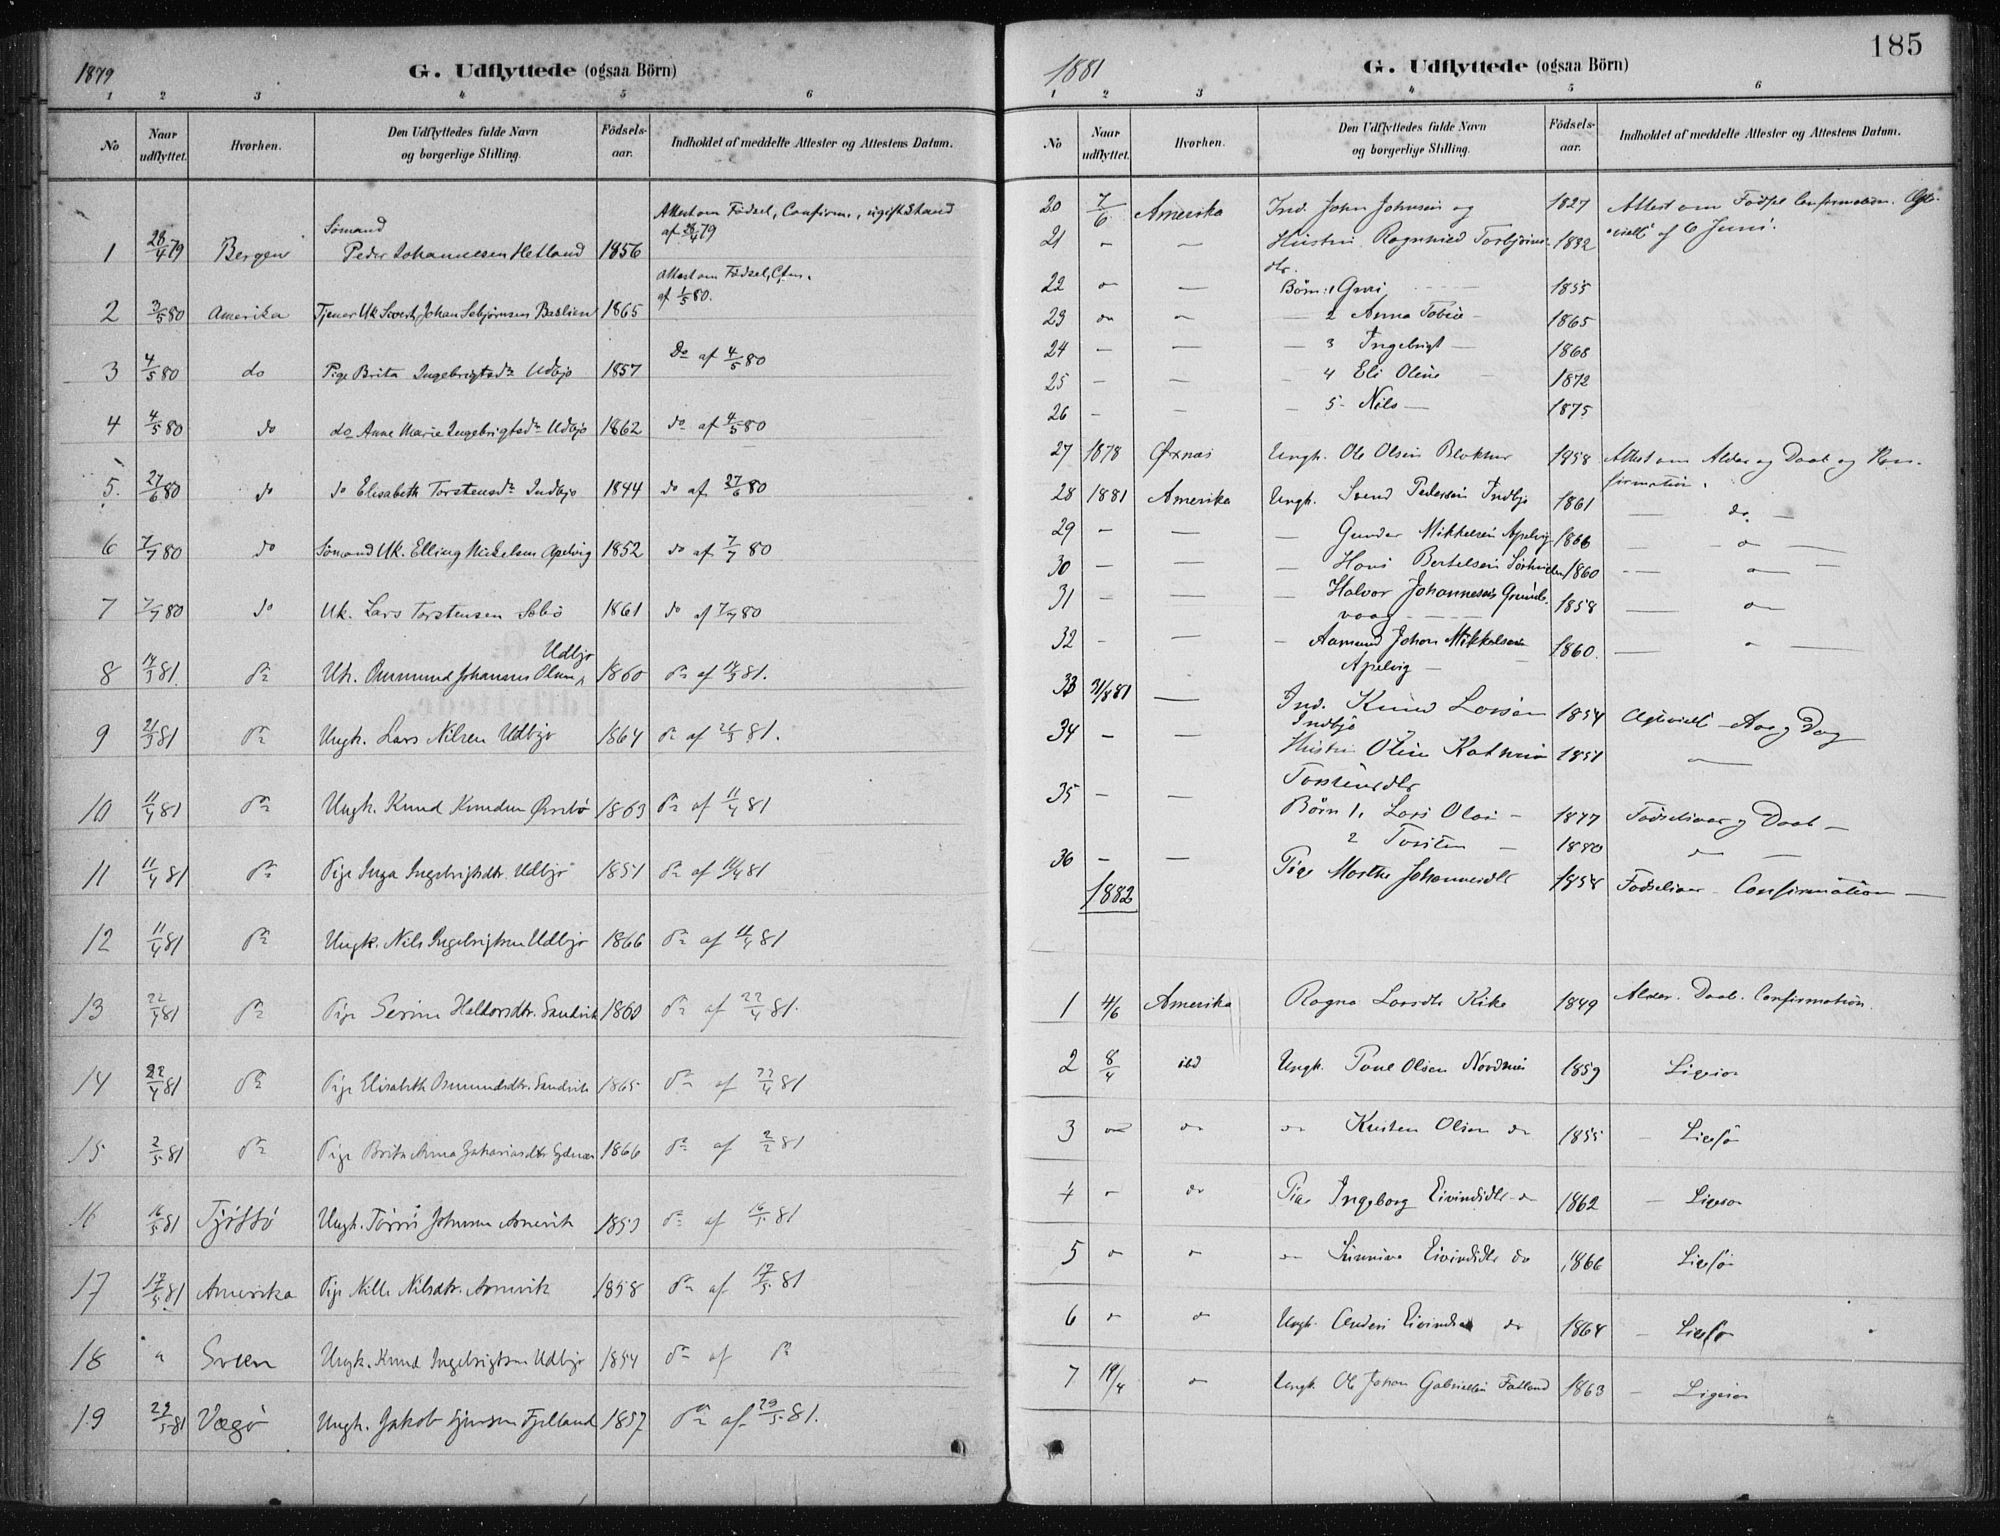 1879
G. Udflyttede (ogsaa Börn)
1 2 3 4 5 6
No Naar udflyttet. Hvorhen. Den Udflyttedes fulde Navn og borgerlige Stilling. Födsels-aar. Indholdet af meddelte Attester og Attestens Datum.
Attest om Födsel, Confirm., ugift Stand
1 28/4 79 Bergen Sömand Peder Johannesen Hetland 1856 af 28/4 79
Attest om Födsel, Cfm.
2 3/5 80 Amerika Tjener Uk Sivert Johan Sebjörnsen 1865 af 1/5 80.
3 4/5 80 do Pige Brita Ingebrigtsdr Udbjo 1857 Do af 4/5 80
4 4/5 80 do do Anne Marie Ingebrigtsdr Udbjo 1862 do af 4/5 80
5. 27/6 80 do do Elisabeth Torstensdr Indbjo 1844 do af 27/6 80
6 7/7 80 do Sömand Uk. Elling Mickelsen Apelvig 1852 do af 7/7 80
7 7/7 80 do Uk. Lars Torstensen 1861 do af 7/7 80
8 14/3 81. do Uk. Osmund Johannes Olsen Udbjo 1860 do af 14/3 81.
9 21/3 81 do Ungk. Lars Nilsen Udbjo 1864 do af 21/3 81.
10 11/4 81 do Ungk. Knud Knudsen 1863 do af 11/4 81
11 11/4 81 do Pige Inga Ingebrigtsdtr. Udbjo 1851 do af 11/4 81
12 11/4 81 do Ungk. Nils Ingebrigtsen Udbjo 1866 do af 11/4 81
13 22/4 81 do Pige Serine Haldorsdtr. Sandvik 1860 do af 22/4 81.
14 22/4 81 do Pige Elisabeth Osmundsdtr. Sandvik 1865 do af 22/4 81
15 2/5 81 do Pige Brita Anna 1866 do af 2/2 81
16 16/5 81 Tjöttö Ungk. Johnsen Arnevik 1853 do af 16/5 81
17 17/5 81 Amerika Pige Nille Nilsdtr. Arnevik 1858 do af 17/5 81
18 Ungk. Knud Ingebrigtsen Udbjo 1854 do af do
19 29/5 81 Vægö Ungk. Jakob Fjelland 1857 do af 29/5 81.
185
1881
G. Udflyttede (ogsaa Börn)
1 2 3 4 5 6
No Naar udflyttet. Hvorhen. Den Udflyttedes fulde Navn og borgerlige Stilling. Födsels-aar. Indholdet af meddelte Attester og Attestens Datum.
20 7/6 Amerika Ind. John Johnsen og 1827 Attest om Födsel Confirmation.
21 – – Hustru Ragnhild Torbjörns-dtr. 1832 af 6 Juni.
22 – Börn: 1 Guri 1855
23 – 2 Anna Tobie – 1865
24 – – – 3 Ingebrigt – 1868
25 – – – 4 Eli Oline – 1872
26 – – – 5 Nils – 1875
27 1878 Øxnæs Ungk. Ole Olsen 1858 Attest om Alder og Daab og Kon-firmation.
28 1881 Amerika Ungk. Svend Pedersen Indbjo 1861 – do –
29 – – – Gunder Mikkelsen Apelvig 1866 – –
30 – – – Hans Bertelsen 1860 – –
31 – – – Halvor Johannesen 1858 –
32 – – – Aamund Johan Mikkelsen Apelvig – 1860. – –
33 31/8 81 – Ind. Knud Larsen Indbjo 1854
34 – – Hustru Oline Kathrine Torstensdtr 1851
35 – – Börn 1, Lars Olai – 1877 Födselsaar og Daab –
2 Torsten – 1880 –
36 – – Pige Marthe Johannesdtr 1858 Födselsaar – Confirmation –
1882
1 4/6 Amerika Ragna Larsdtr Kike 1849 Alder. Daab. Confirmation.
2 8/4 ibd Ungk. Tone Olsen Nordnes 1859 Ligesaa
3 do do do Kristen Olsen do 1855 – Ligesö
4 – do Pige Ingeborg Eivindsdtr do 1862 – Ligesaa
5 do do do Sunniva Eivindsdtr do 1866 Ligesö
6 do do Ungk. Anders Eivindsen do 1864 – Ligesö
7 19/4 do Ungk Ole Johan Gabrielsen Fatland 1863 – Ligesaa